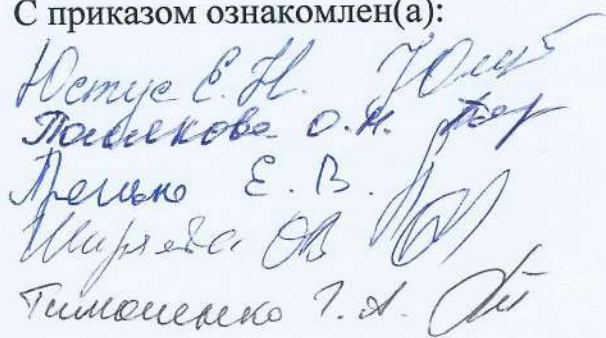 С приказом ознакомлен(а):
Юстус Е. Н.
Полякова О. Н.
Е. В.
Ширяева ОВ
Тимошенко Г. А.